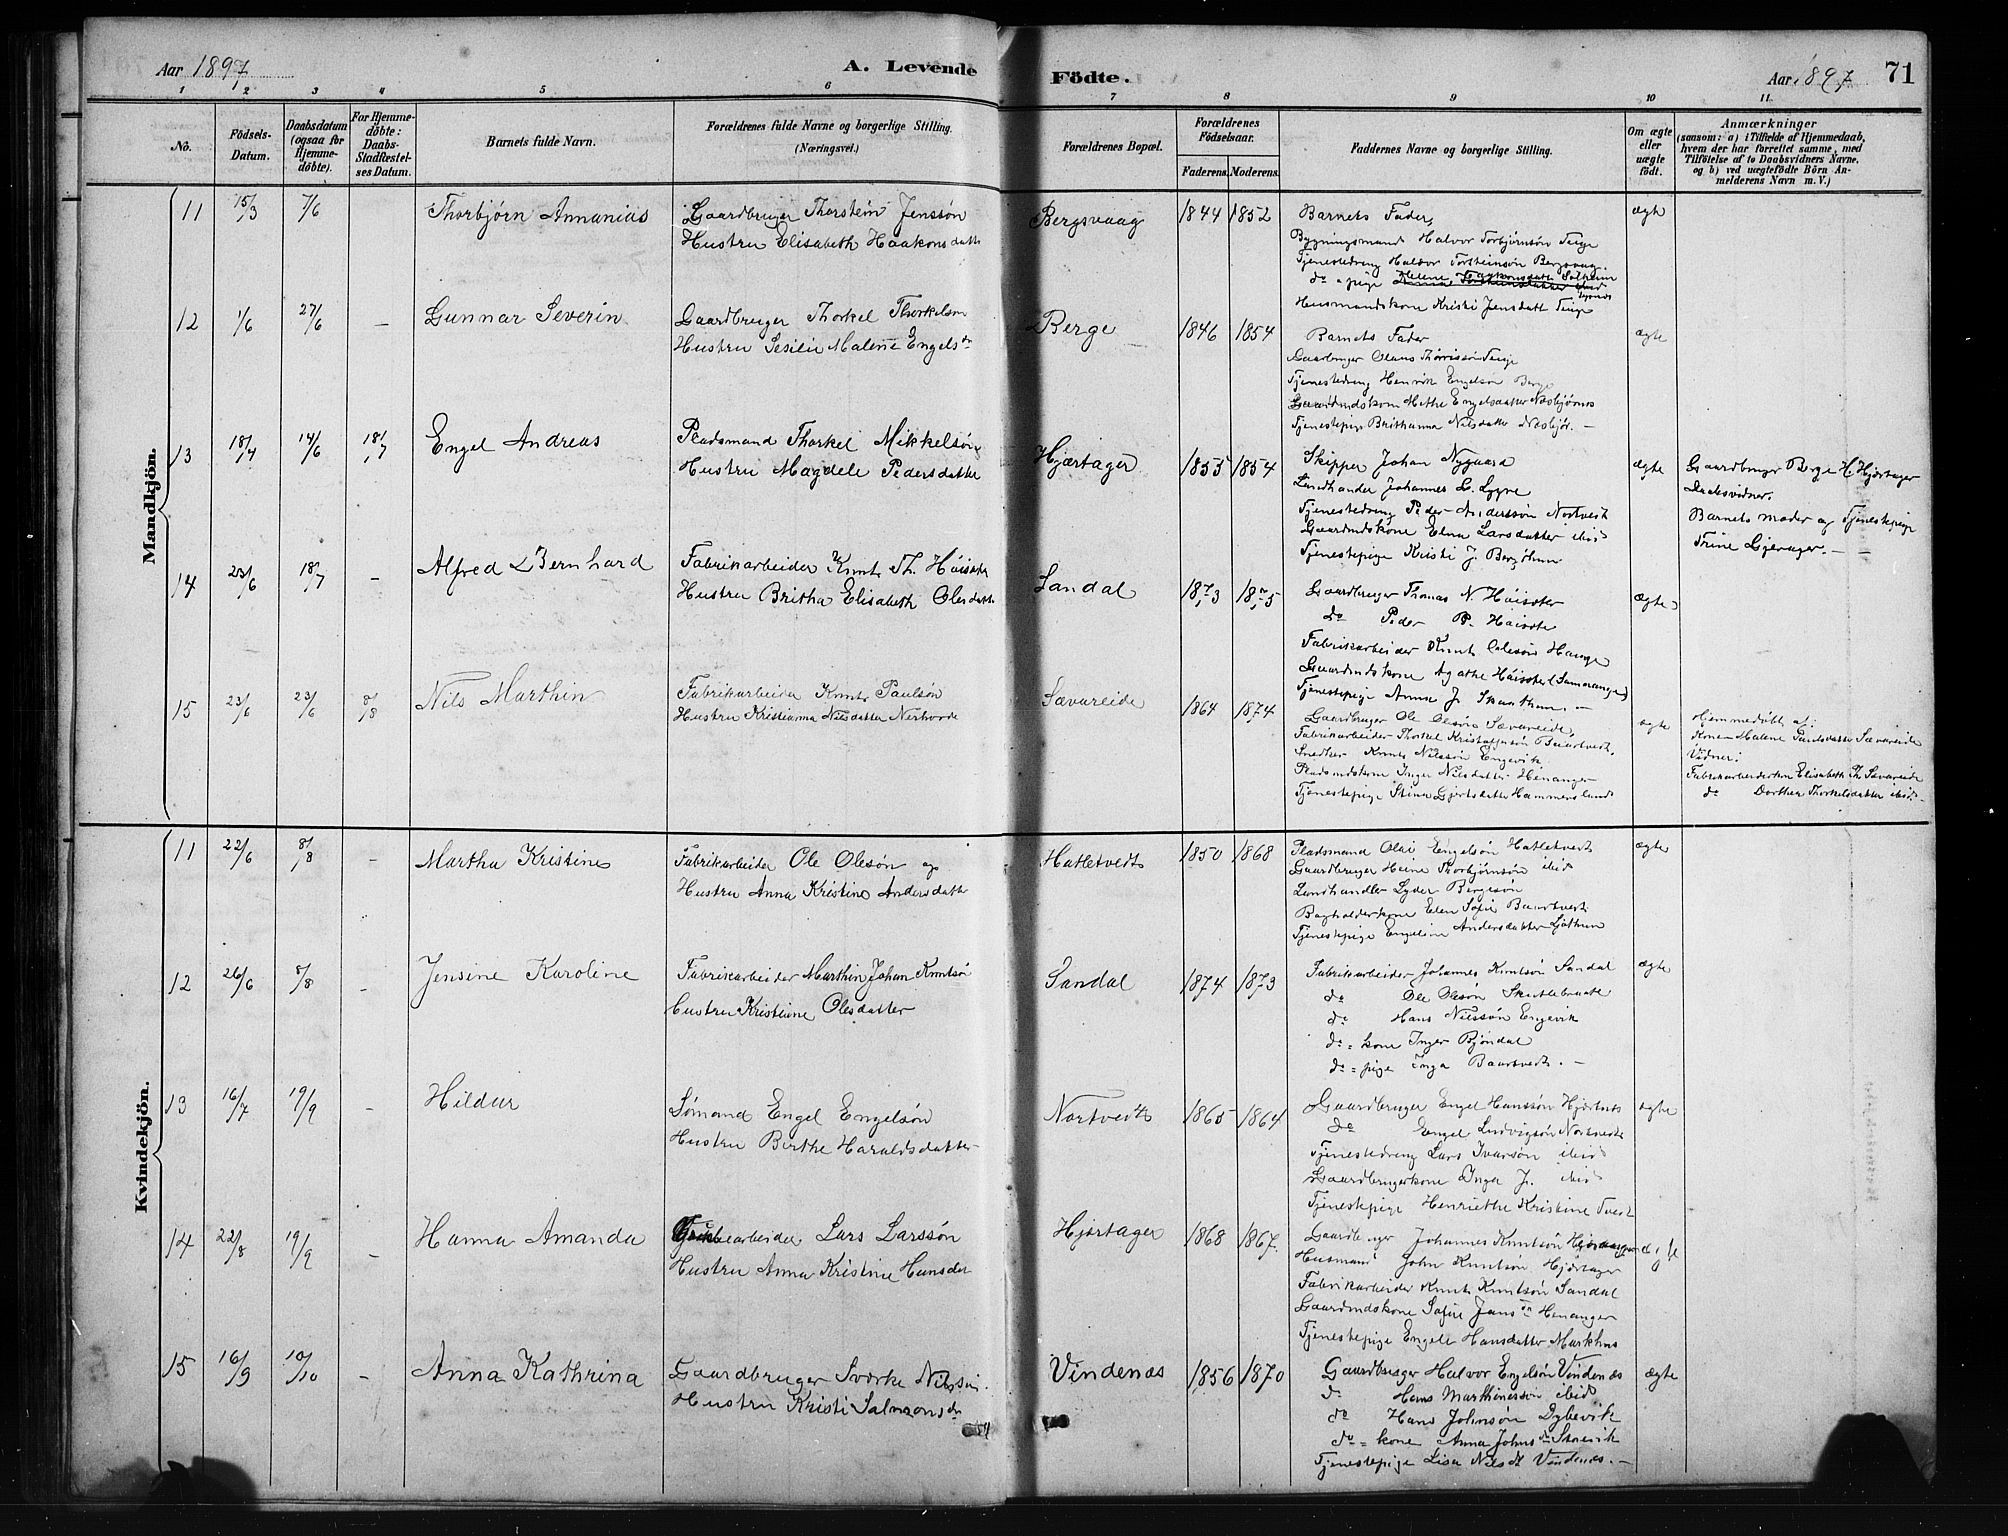 Aar 1897
A. Levende
Födte.
Aar 1897
71
1 2 3 4 5 6 7 8 9 10 11
No.
Födsels-
Datum.
Daabsdatum
(ogsaa for
Hjemme-
döbte).
For Hjemme-
döbte:
Daabs-
Stadfæstel-
ses Datum.
Barnets fulde Navn.
Forældrenes fulde Navne og borgerlige Stilling.
(Næringsvei.)
Forældrenes Bopæl.
Forældrenes
Födselsaar.
Faderens. Moderens.
Faddernes Navne og borgerlige Stilling.
Om ægte
eller
uægte
födt.
Anmærkninger
(saasom: a) i Tilfælde af Hjemmedaab,
hvem der har forrettet samme, med
Tilföielse af to Daabsvidners Navne,
og b) ved uægtefödte Börn An-
melderens Navn m. V.)
Mandkjön.
11 15/3 7/6 Thorbjörn Annanias
Gaardbruger Thorstein Jensön
Hustru Elisabeth Haakonsdatter
Bergsvaag 1844 1852
Barnets Fader,
Bygningsmand Halvor Torbjörnsön Teige
Tjenestedreng Halvor Torsteinsön Bergsvaag
do = pige Helene Haakonsdatter Solheim
Husmandskone Kristi Jensdatt Teige
ægte
12 1/6 27/6 – Gunnar Severin
Gaardbruger Thorkel Thorkelsön
Hustru Sesilie Malene Engelsdr
Berge 1846 1854
Barnets Fader
Gaardbruger Olaus Teige
Tjenestedreng Henrik Engelsön Berge
Gaardmdskone Methe Engelsdatter Næsbjørnes
Tjenestepige Brithanna Nilsdatter –
ægte
13 18/4 14/6 18/7 Engel Andreas
Pladsmand Thorkel Mikkelsön
Hustru Magdele Pedersdatter
Hjertager 1855 1854
Skipper Johan Nygaard
Landhandler Johannes L. Lygre
Tjenestedreng Peder Anderssön Nortvedt
Gaardmdskone Elna Larsdatter ibid
Tjenestepige Kristi J.
ægte
Gaardbruger Berge H. Hjertager
Daabsvidner.
Barnets moder og Tjenestepige
Trine –
14 23/6 18/7 – Alfred Bernhard
Fabrikarbeider Knut Th. Höisæter
Hustru Britha Elisabeth Olesdatter
Sandal 1873 1875
Gaardbruger Thomas N. Höisæter
do Peder P. Höisæter
Fabrikarbeider Knut Olesön Hauge
Gaardmdskone Agathe Höisæter (Samnanger)
Tjenestepige Anna J. –
ægte
15 23/6 23/6 8/8 Nils Marthin
Fabrikarbeider Knut Paulsön
Hustru Kristianna Nilsdatter Nerhovde
Sævareide 1864 1874
Gaardbruger Ole Olesön Sævareide,
Fabrikarbeider Thorkel Kristoffersön Baartvedt,
Snedker Knut Nilssön Engevik
Pladsmdskone Inger Nilsdatter Henanger
Tjenestepige Stina Gjertsdatter Hammersland
ægte
Hjemmedöbt af:
Kone Malene Paulsdatter Sævareide
Vidner:
Fabrikarbeiderkone Elisabeth Th Sævareide
do Dorthea Thorkelsdatter ibid.
Kvindekjön.
11 22/6 8/8 – Martha Kristine
Fabrikarbeider Ole Olesön og
Hustru Anna Kristine Andersdatter
Hatletvedt 1850 1868
Pladsmand Olai Engelsön Hatletvedt
Gaardbruger Heine Thorbjörnsön ibid
Landhandler Lyder Bergesön
Bogholderkone Elen Sofie Baartvedt
Tjenestepige Engeline Andersdatter
ægte
12 26/6 8/8 – Jensine Karoline
Fabrikarbeider Marthin Johan Knutsön
Hustru Kristiane Olesdatter
Sandal 1874 1873
Fabrikarbeider Johannes Knutsön Sandal
do Ole Olesön
do Hans Nilssön Engevik
do = kone Inger Bjöndal
do = pige Inga Baartvedt. –
ægte
13 16/7 19/9 – Hildur
Sömand Engel Engelsön
Hustru Birthe Haraldsdatter
Nortvedt 1865 1864
Gaardbruger Engel Hanssön Hjertnes
do Engel Ludvigsön Nortvedt
Tjenestedreng Lars Ivarsön ibid
Gaardbrugerkone Inga J. ibid
Tjenestepige Henriethe Kristine Tvedt
ægte
14 22/8 19/9 – Hanna Amanda
Grubearbeider Lars Larssön
Hustru Anna Kristine Hansdtr
Hjertager 1868 1867
Gaardbruger Johannes Knutsön Hjertager
Husmand John Knutsön Hjertager
Fabrikarbeider Knut Knutsön Sandal
Gaardmdskone Sofie Jansdr Henanger
Tjenestepige Engele Hansdatter Markhus
ægte
15 16/9 10/10 – Anna Kathrina
Gaardbruger Sverke Nilssön
Hustru Kristi Salmonsdr
Vindenæs 1856 1870
Gaardbruger Halvor Engelsön Vindenæs
do Hans Marthinessön ibid
do Hans Johnsön Dybevik
do = kone Anna Johnsdr Skorvik
Tjenestepige Lisa Nilsdt Vindenæs. –
ægte